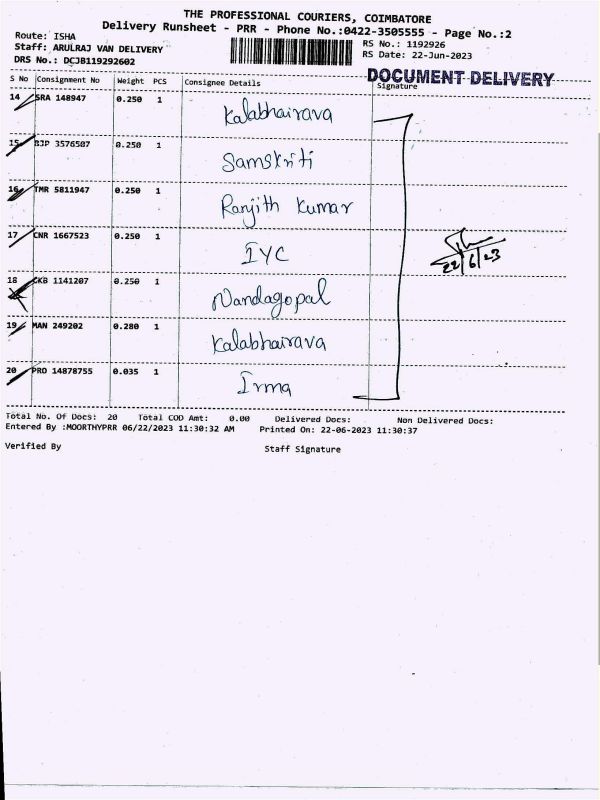 THE PROFESSIONAL COURIERS, COIMBATORE
Delivery Runsheet - PRR - Phone No.:0422-3505555 - Page No.:2
Route: ISHA
Staff: ARULRAJ VAN DELIVERY
RS No.: 1192926
DRS No.: DCJB119292602
RS Date: 22-Jun-2023
DOCUMENT DELIVERY
S No Consignment No Weight PCS Consignee Details Signature
14 SRA 148947 0.250 1 Kalabhairava
15 BJP 3576507 0.250 1 Samskriti
16 TMR 5811947 0.250 1 Ranjith Kumar
17 CNR 1667523 0.250 1 IYC
22/6/23
18 CKB 1141207 0.250 1 Nandagopal
19 MAN 249202 0.280 1 Kalabhairava
20 PRO 14878755 0.035 1 Irma
Total No. Of Docs: 20 Total COD Amt: 0.00 Delivered Docs: Non Delivered Docs:
Entered By :MOORTHYPRR 06/22/2023 11:30:32 AM Printed On: 22-06-2023 11:30:37
Verified By Staff Signature